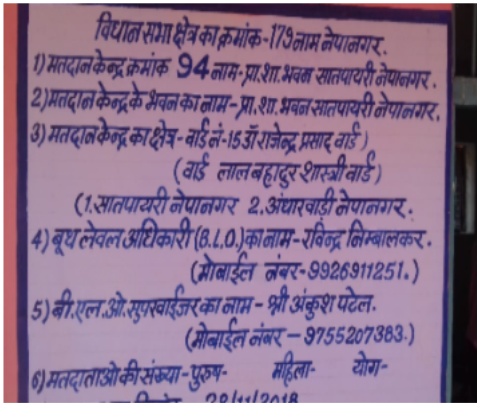 विधान सभा क्षेत्र का क्रमांक-179 नाम नेपानगर.
1) मतदान केन्द्र क्रमांक 94 नाम-प्रा.शा.भवन सातपायरी नेपानगर.
2) मतदान केन्द्र के भवन का नाम-प्रा.शा.भवन सातपायरी नेपानगर.
3) मतदान केन्द्र का क्षेत्र-वार्ड नं-15 डॉ राजेन्द्र प्रसाद वार्ड)
(वार्ड लाल बहादुर शास्त्री वार्ड)
(1.सातपायरी नेपानगर 2.अंधारवाडी नेपानगर.
4) बूथ लेवल अधिकारी (B.L.O.) का नाम-रविन्द्र निम्बालकर.
(मोबाईल नंबर-9926911251.)
5) बी.एल.ओ.सुपरवाईजर का नाम-श्री अंकुश पटेल.
(मोबाईल नंबर-9755207383.)
6) मतदाताओ की संख्या-पुरुष- महिला- योग-
28/11/2018